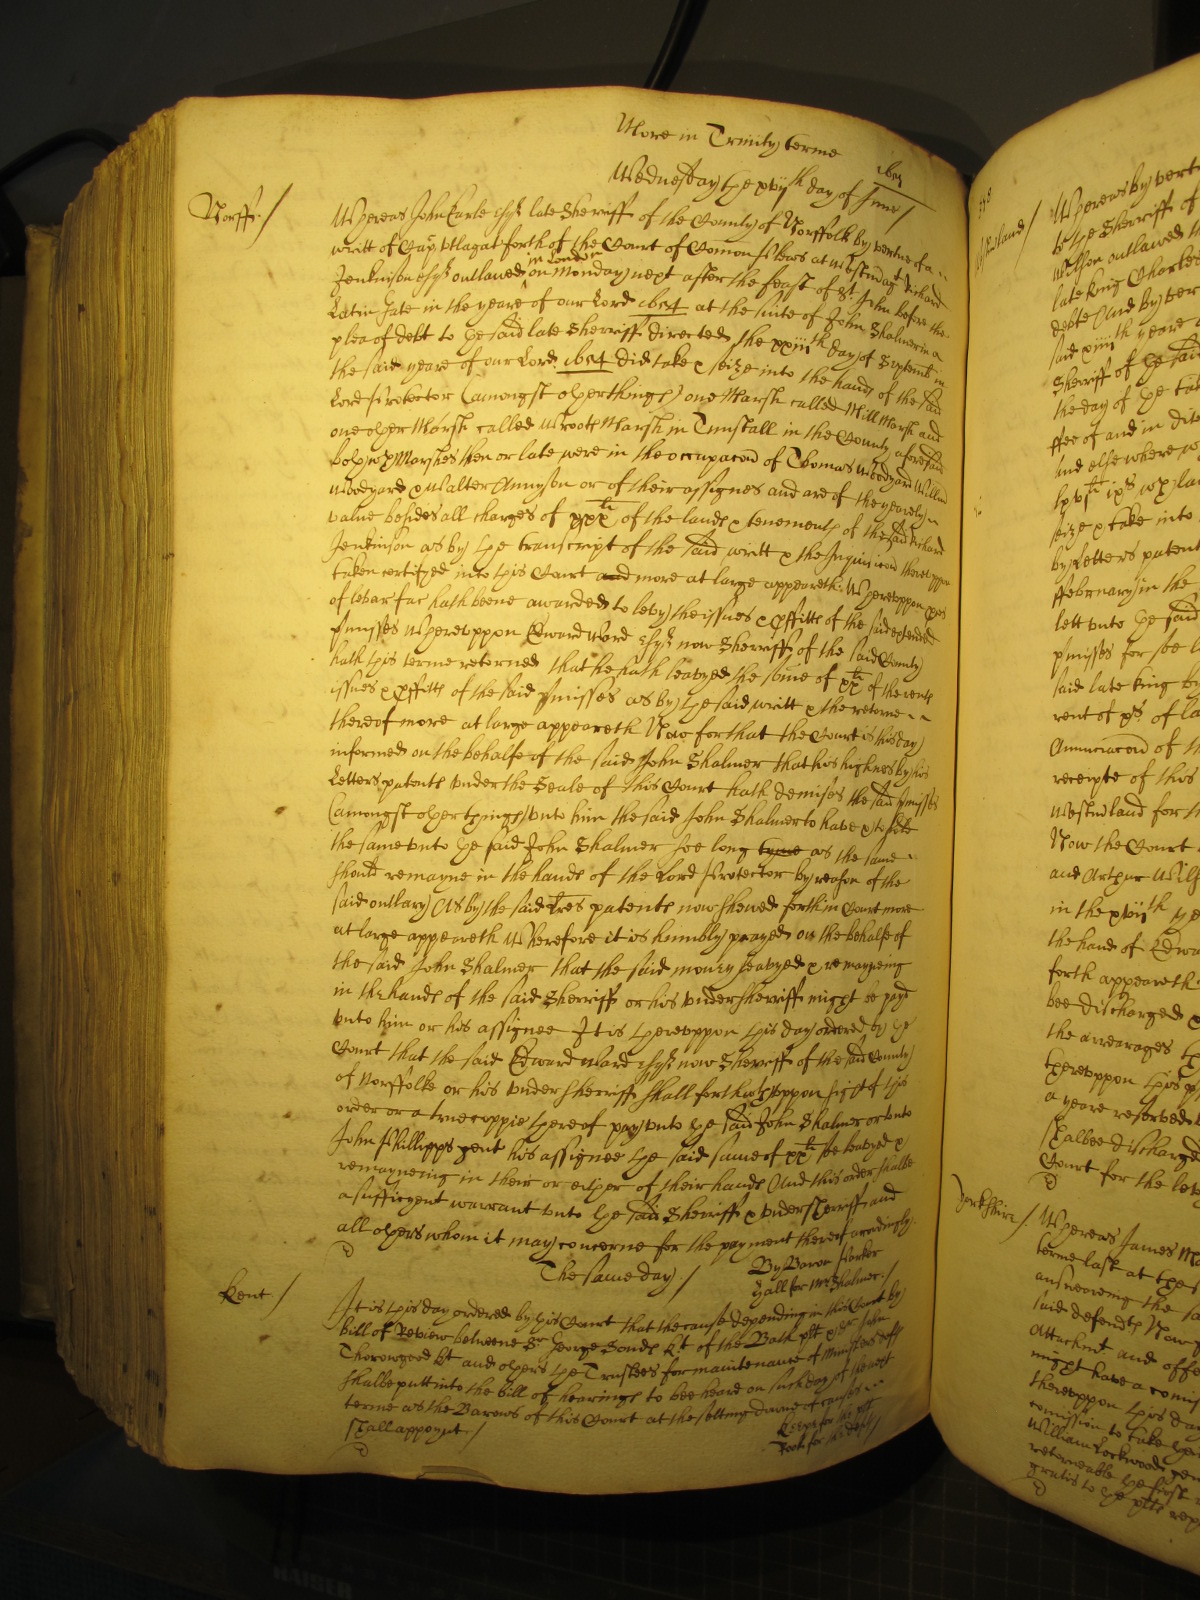 More in Trinity terme
Wednesday the xviith day of June /
Norff. /
Whereas John Earle Esqr late Sherriffe of the County of Norffolk by vertue of a
writt of Cap vtlagat forth of the Court of Comon Pleas at Westm agt Richard
Jenkinson Esqr outlawed in London on Monday next after the feast of St John before the
Latin gate in the yeare of our Lord 1654 at the suite of John Shalmer in a
plea of debt to the said late Sherriffe directed the xxiiith day of Septemb in
the said yeare of our Lord 1654 did take & seize into the hands of the said
Lord Protector (amongst other things) one Marsh called Mill Marsh and
one other Marsh called Wroote Marsh in Tunstall in the County aforesaid
both wch Marshes then or late were in the occupacon of Thomas Woodyard Willm
Woodyard & Walter Annyson or of their assignes and are of the yearely
value besides all charges of xxxli of the lands & tenements of the said Richard
Jenkinson as by the transcript of the said writt & the Inquisicon therevppon
taken certifyed into this Court and more at large appeareth Wherevppon pces
of levar fac hath beene awarded to levy the issues & pffitts of the said extended
pmisses Wherevppon Edward Ward Esqr now Sherriffe of the said County
hath this terme returned that he hath leavyed the some of xxli of the rents
issues & pffitts of the said pmisses as by the said writt & the retorne
thereof more at large appeareth Now for that the Court is this day
informed on the behalfe of the said John Shalmer that his highnes by his
Letters patents vnder the Seale of this Court hath demised the said pmisses
(amongst other things) vnto him the said John Shalmer to have & to hold
the same vnto the said John Shalmer soe long tyme as the same
should remayne in the hands of the Lord Protector by reason of the
said outlary As by the said Lres patents now shewed forth in Court more
at large appeareth Wherefore it is humbly prayed on the behalfe of
the said John Shalmer that the said money leavyed & remayneing
in the hands of the said Sherriffe or his vndersherriffe might be paid
vnto him or his assignee It is therevppon this day ordered by the
Court that the said Edward Ward Esqr now Sherriffe of the said County
of Norffolke or his vndersherriffe shall forthwth vppon sight of this
order or a true coppie thereof pay vnto the said John Shalmer or vnto
John Phillipps gent his assignee the said sume of xxli soe leavyed &
remayneing in their or either of their hands And this order shalbe
a sufficyent warrant vnto the said Sherriffe & vndersherriffe and
all others whom it may concerne for the payment thereof accordingly.
By Baron Parker
The same day /
Hall for Mr Shalmer /
Kent /
It is this day ordered by this Court that the cause depending in this Court by
bill of Review betweene Sr George Sonds kt of the Bath plt & Sr John
Thorowgood kt and others the Trustees for maintenance of Ministers defts
shalbe putt into the bill of hearings to bee heard on such day of the next
terme as the Barons of this Court at the setting downe of causes
shall appoynt /
for the plt
for the defts /
Whereas by vert
to the Sherriffe of
Wilson outlawed th
late King Charles
debte And by ver
said xiiith yeare
Sherriff of the said
the day of the ta
ffee of and in div
And elsewhere w
seize & take into
by Letters patent
ffebruary in the
lett vnto the said
pmisses for soe l
said late King by
rent of
Annunciacon of th
receipte of this
Westmland for th
Now the Court
and Arthur Wils
in the xviith ye
the hand of Edwa
forth appeareth
bee discharged &
the arrearages
therevppon this
a yeare reserved
shalbee discharge
Court for the lev
Yorkshire /
Whereas James Ma
terme last at the s
answering the sa
said defendts Now f
Attachmt and offe
might have a comis
therevppon this day
comission to take
William Lockwood gen
returneable the first
gratis to the plts rep